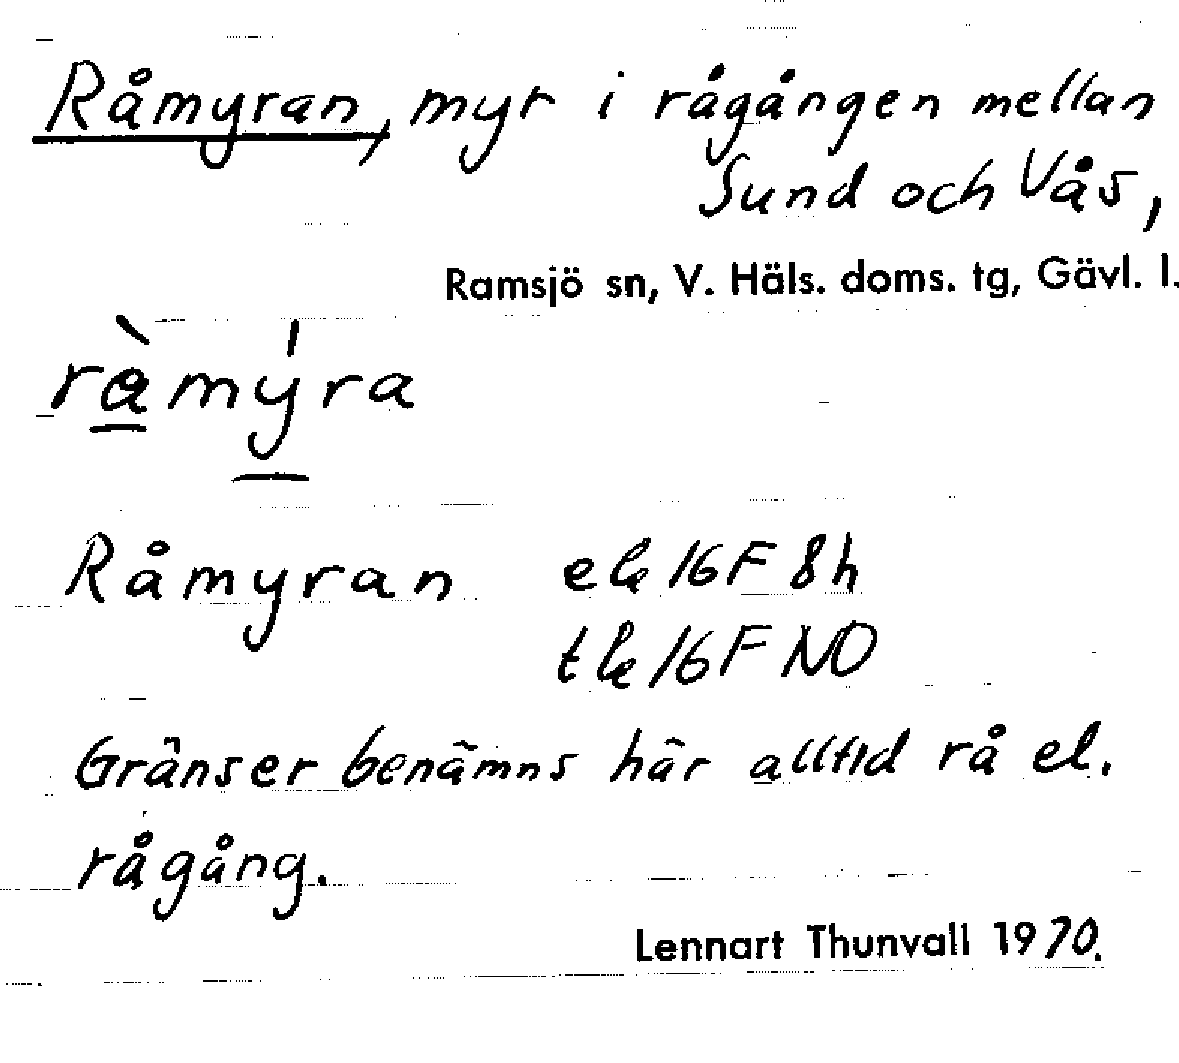 Råmyran, myr i rågången mellan
Sund och Vås,
Ramsjö sn, V. Häls. doms. tg, Gävl. l.
ràmýra
Råmyran ek 16F 8h
tk 16F NO
Gränser benämns här alltid rå el.
rågång.
Lennart Thunvall 1970.